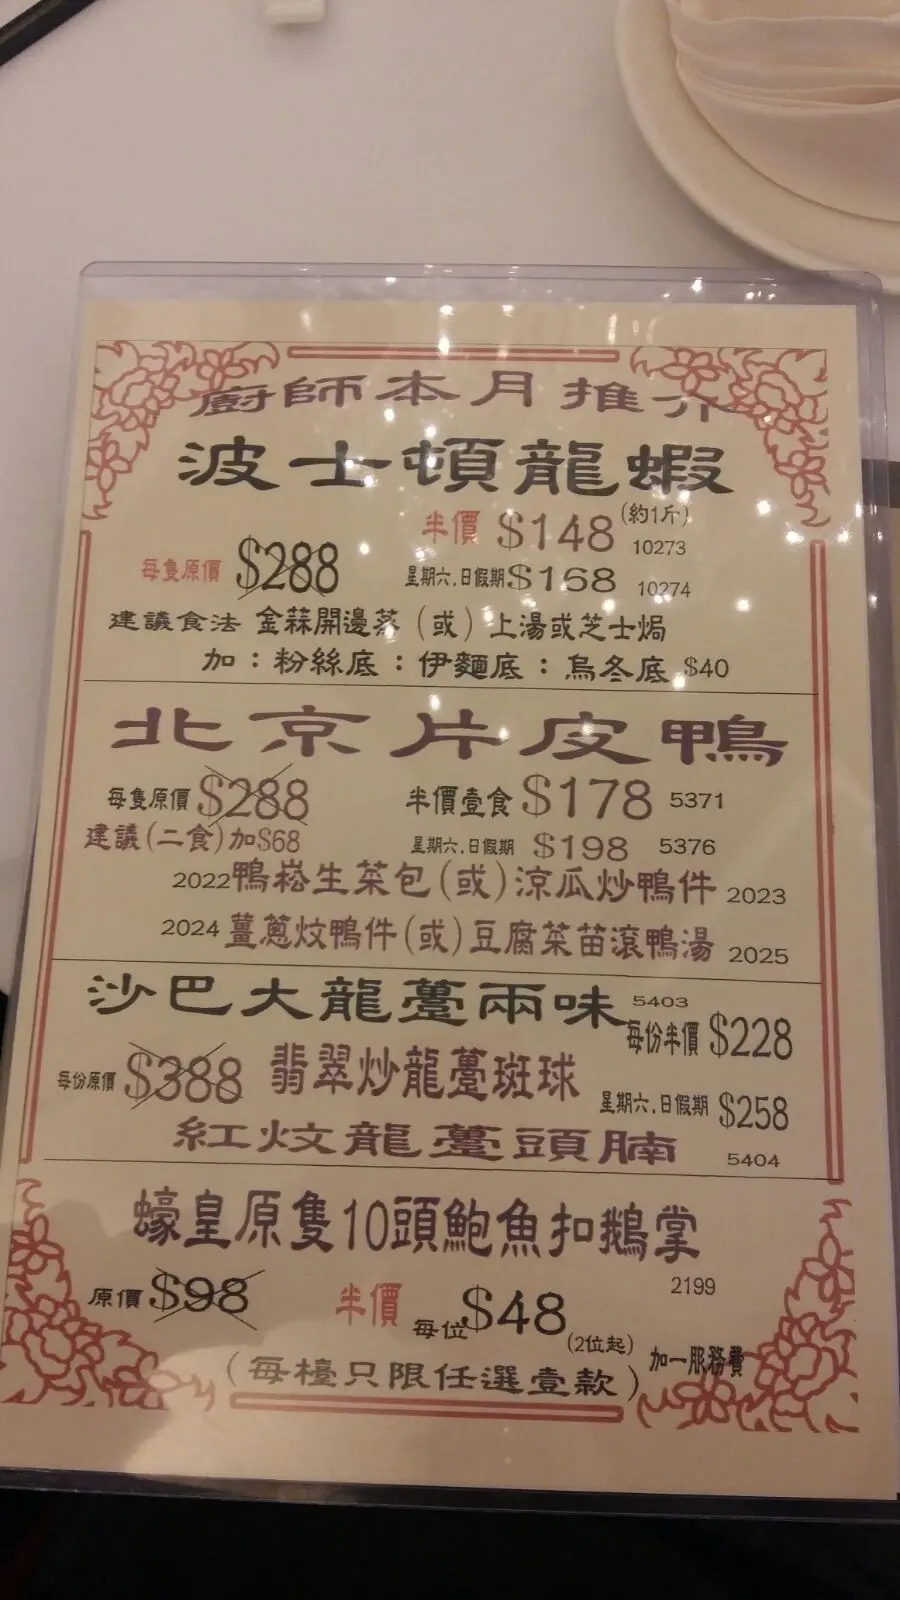 廚師本月推介
波士頓龍蝦
半價 $148 (約1斤) 10273
每隻原價 $288
星期六.日假期 $168 10274
建議食法 金蒜開邊蒸 (或) 上湯或芝士焗
加：粉絲底：伊麵底：烏冬底 $40
北京片皮鴨
每隻原價 $288 半價壹食 $178 5371
建議(二食)加$68 星期六.日假期 $198 5376
2022 鴨崧生菜包(或)涼瓜炒鴨件 2023
2024 薑蔥炆鴨件(或)豆腐菜苗滾鴨湯 2025
沙巴大龍躉兩味 5403
每份半價 $228
每份原價 $388 翡翠炒龍躉斑球
星期六.日假期 $258
紅炆龍躉頭腩 5404
蠔皇原隻10頭鮑魚扣鵝掌
2199
原價 $98 半價 每位 $48 (2位起)
加一服務費
(每檯只限任選壹款)